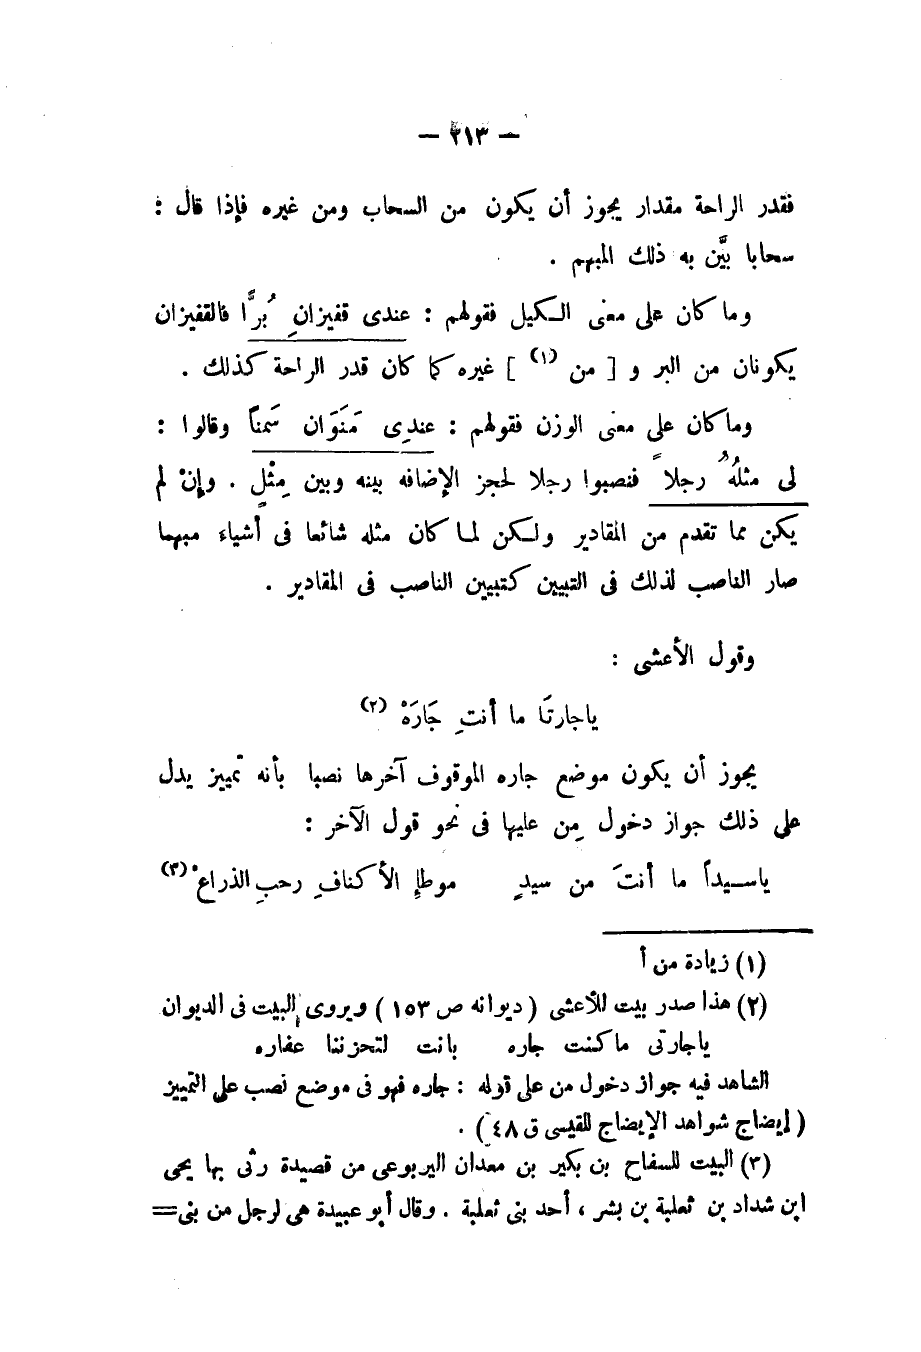 — ٢١٣ —
فقدر الراحة مقدار يجوز أن يكون من السحاب ومن غيره فإذا قال :
سحابا بيَّن به ذلك المبهم .
وما كان على معنى الكيل فقولهم : عندى قفيزانِ بُرًّا فالقفيزان
يكونان من البر و [ من (١) ] غيره كما كان قدر الراحة كذلك .
وما كان على معنى الوزن فقولهم : عندِى مَنَوَان سَمناً وقالوا :
لى مثلُهُ رجلاً فنصبوا رجلا لحجز الإضافه بينه وبين مِثْلٍ . وإنْ لم
يكن مما تقدم من المقادير ولكن لما كان مثله شائعا فى أشياء مبهما
صار الناصب لذلك فى التبيين كتبيين الناصب فى المقادير .
وقول الأعشى :
ياجارتَا ما أنتِ جَارَهْ (٢)
يجوز أن يكون موضع جاره الموقوف آخرها نصبا بأنه تمييز يدل
على ذلك جواز دخول مِن عليها فى نحو قول الآخر :
ياسيداً ما أنتَ من سيدٍ موطإِ الأكنافِ رحبِ الذراعْ (٣)
(١) زيادة من أ
(٢) هذا صدر بيت للأعشى ( ديوانه ص ١٥٣ ) ويروى البيت فى الديوان
ياجارتى ماكنت جاره بانت لتحزننا عفاره
الشاهد فيه جواز دخول من على قوله : جاره فهو فى موضع نصب على التمييز
( إيضاح شواهد الإيضاح للقيسى ق ٤٨ ) .
(٣) البيت للسفاح بن بكير بن معدان اليربوعى من قصيدة رثى بها يحى
ابن شداد بن ثعلبة بن بشر ، أحد بنى ثعلبة . وقال أبو عبيدة هى لرجل من بنى=